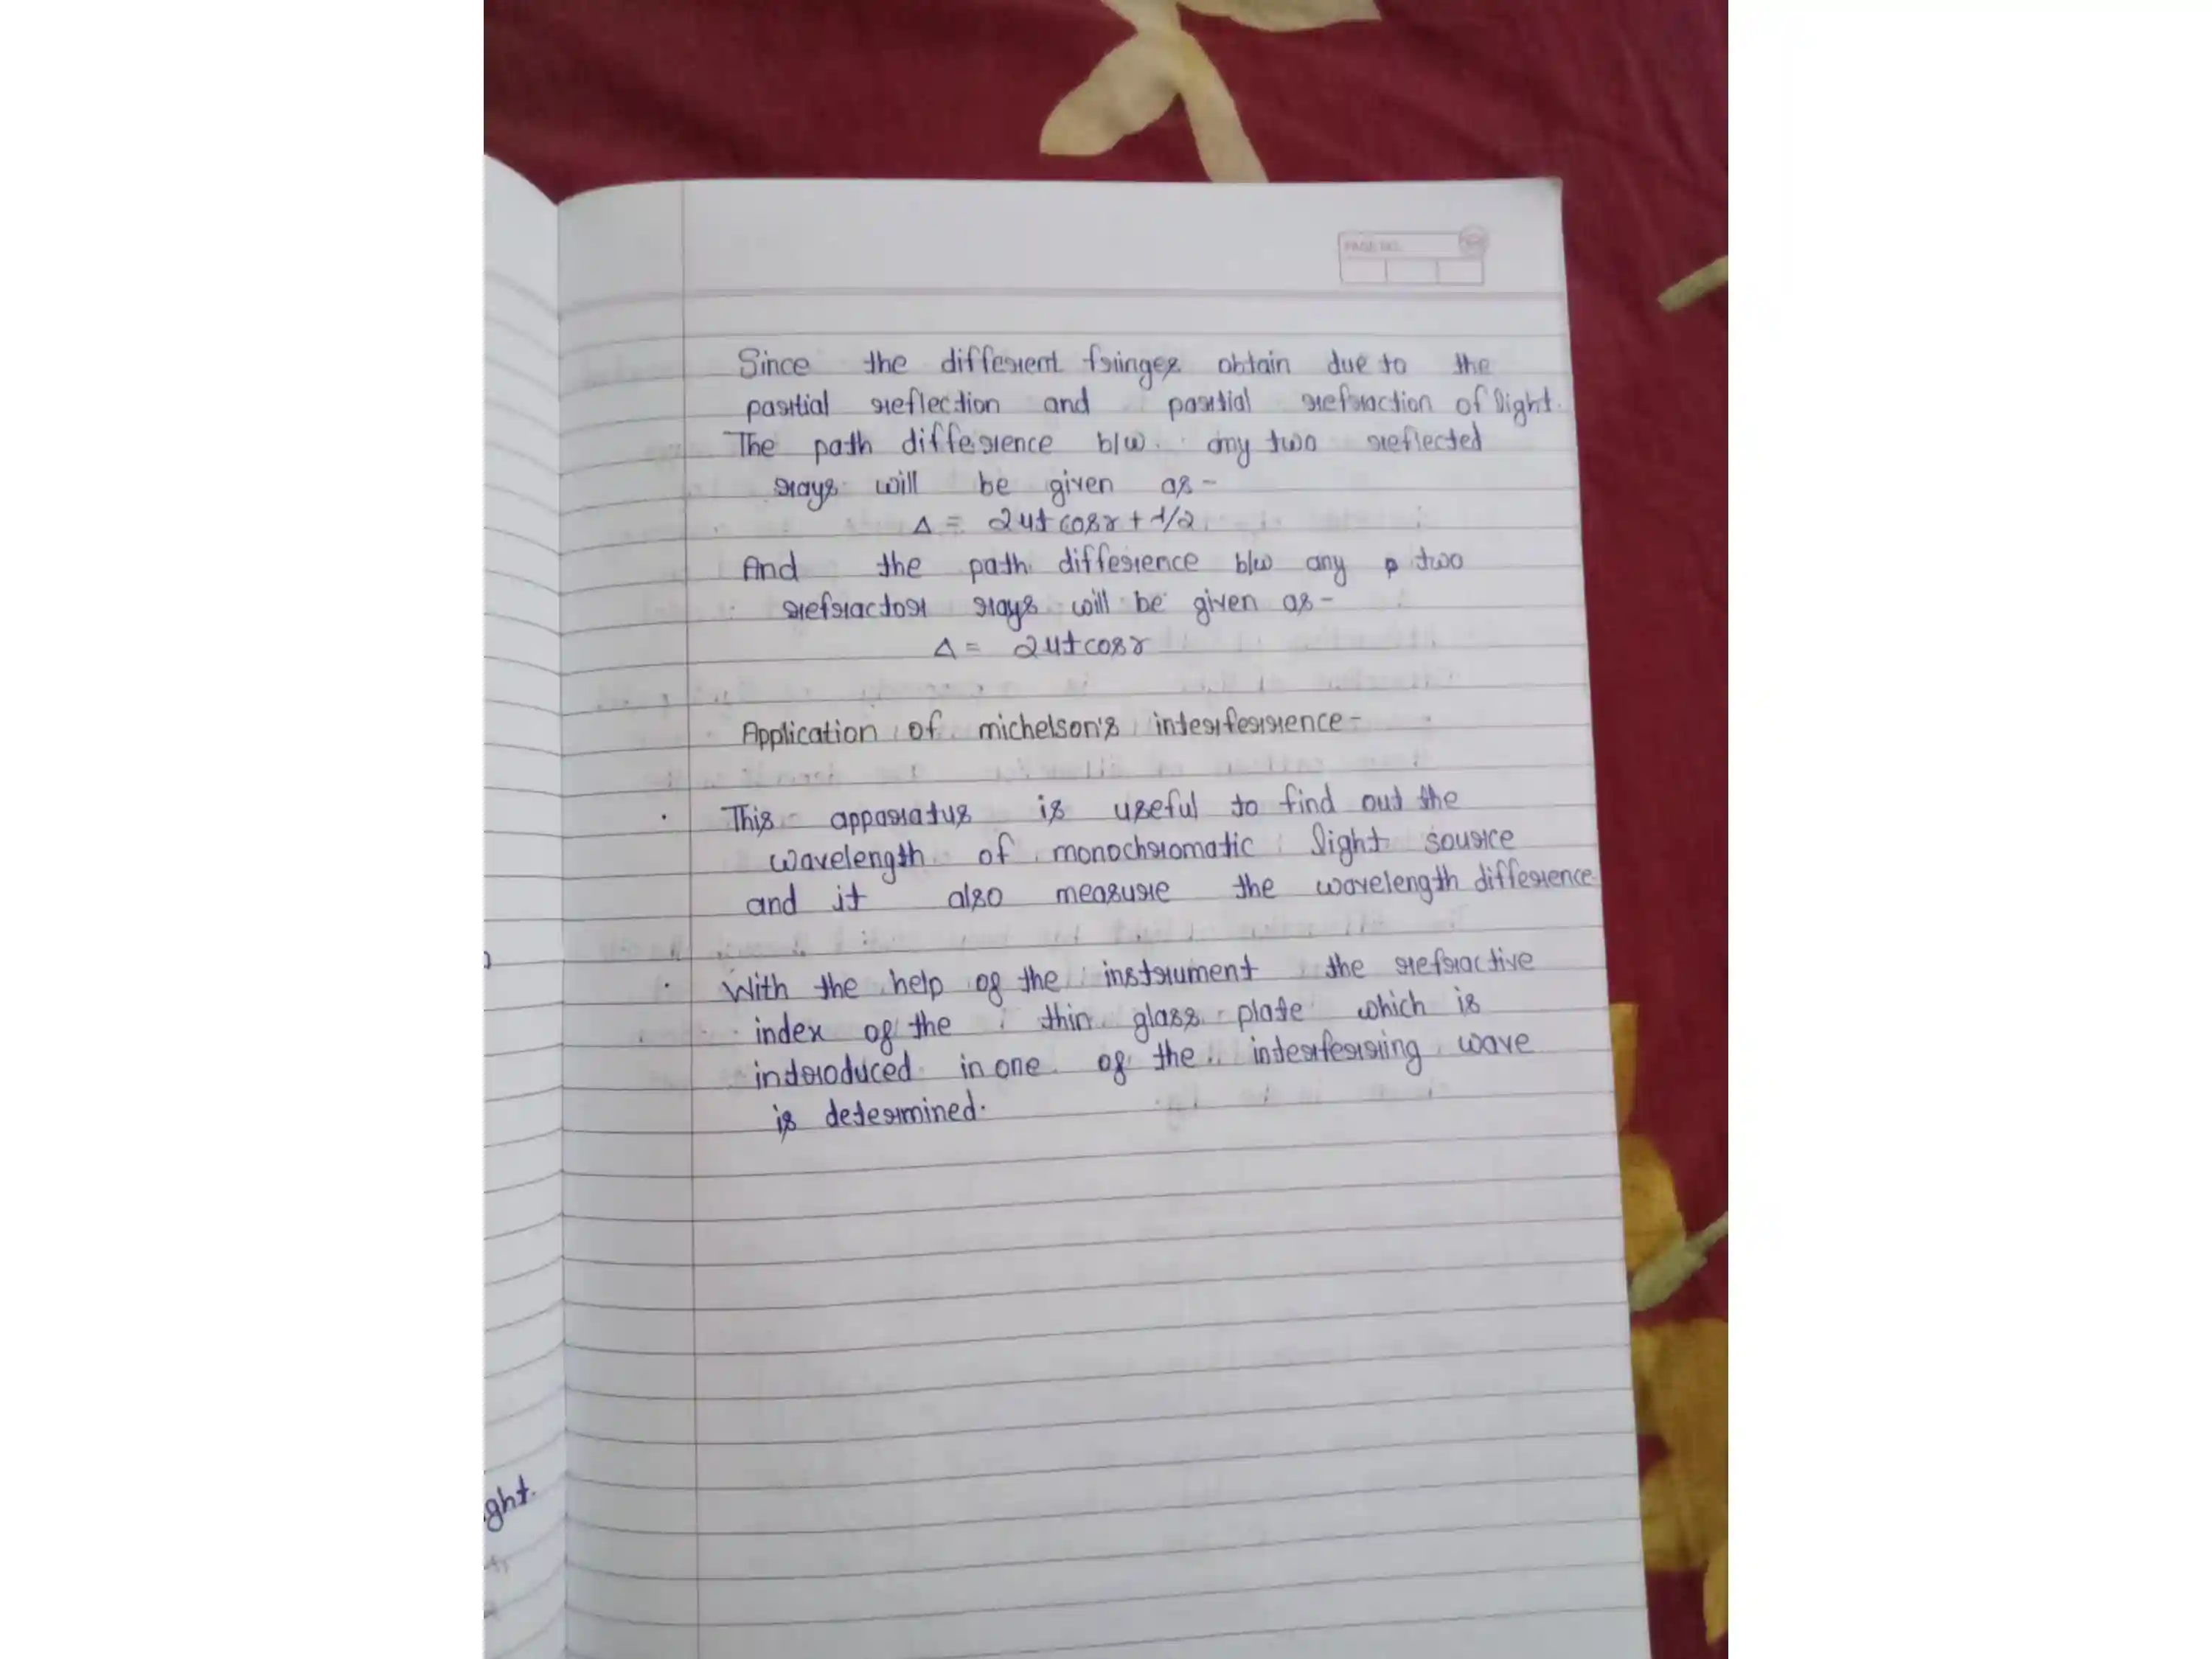 PAGE NO.
Since the different fringes obtain due to the
partial reflection and partial refraction of light.
The path difference b/w any two reflected
rays will be given as -
Δ = 2μt cosr + λ/2
And the path difference b/w any two
refractor rays will be given as -
Δ = 2μt cosr
Application of michelson's interferrence -
· This apparatus is useful to find out the
wavelength of monochromatic light source
and it also measure the wavelength difference
· With the help of the instrument the refractive
index of the thin glass plate which is
introduced in one of the interferring wave
is determined.
ght.